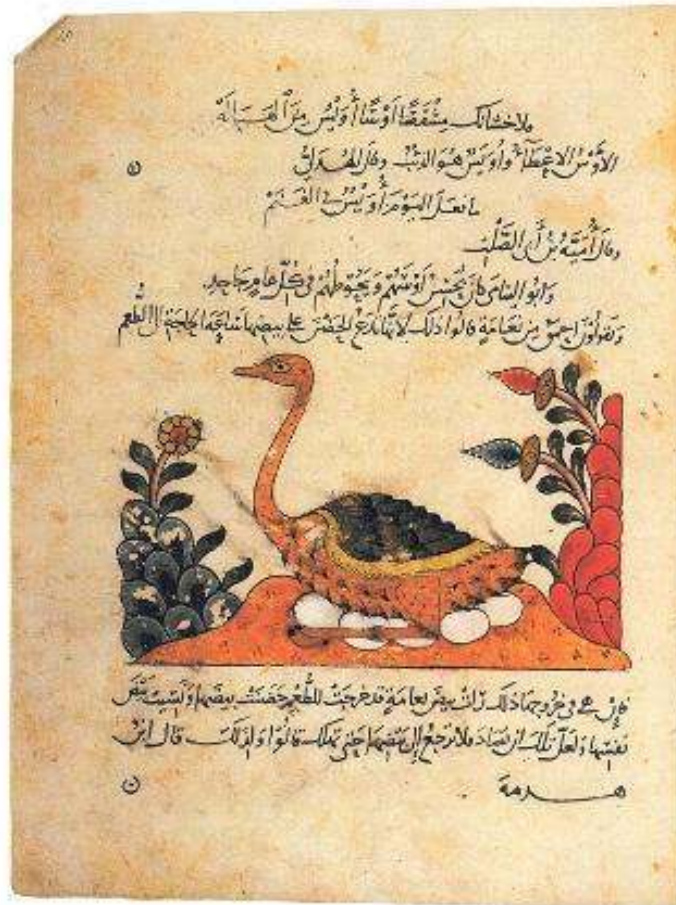 فلأحشأنك مشقصا أوسا أويس من الهباله
الأوس الإعطاء وأويس هو الذئب وقال الهذلي
ما فعل اليوم أويس في الغنم
وقال أمية بن أبي الصلت
وأبو اليتامى كان يحسن أوسهم ويحوطهم في كل عام جاحد
ويقولون أحمق من نعامة قالوا ذلك لأنها تدع الحضن على بيضها ساعة الحاجة إلى الطعم
فإن هي في خروجها ذلك رأت بيض نعامة قد خرجت للطعم حضنت بيضها ونسيت بيض
نفسها ولعل تلك أن تصاد فلا ترجع إلى بيضها حتى تهلك قالوا ولذلك قال ابن
هرمة